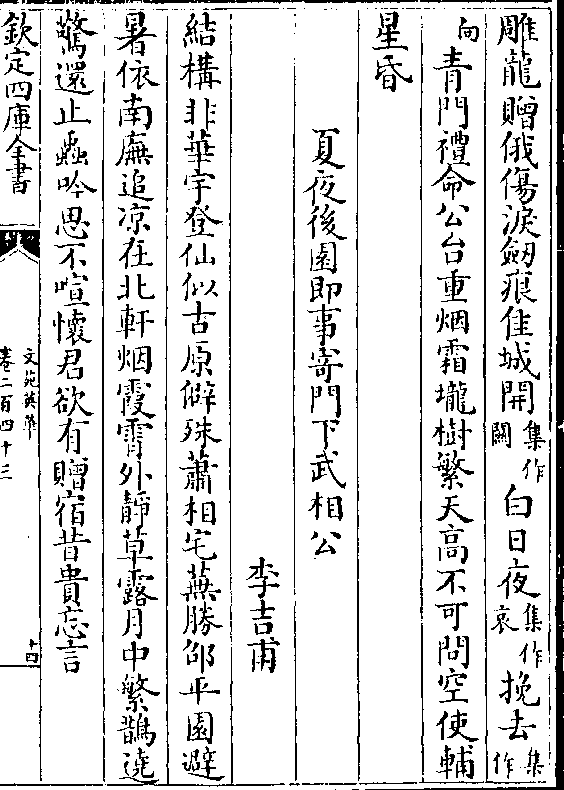 雕龍贈俄傷淚劒痕佳城開集作闕白日夜集作哀挽去集作
向青門禮命公台重烟霜壠樹繁天高不可問空使輔
星昏
夏夜後園即事寄門下武相公
李吉甫
結構非華宇登仙似古原僻殊蕭相宅蕪勝邵平園避
暑依南廡追凉在北軒烟霞霄外靜草露月中繁鵲遶
驚還止蟲吟思不喧懷君欲有贈宿昔貴忘言
欽定四庫全書
文苑英華
卷二百四十三
十四